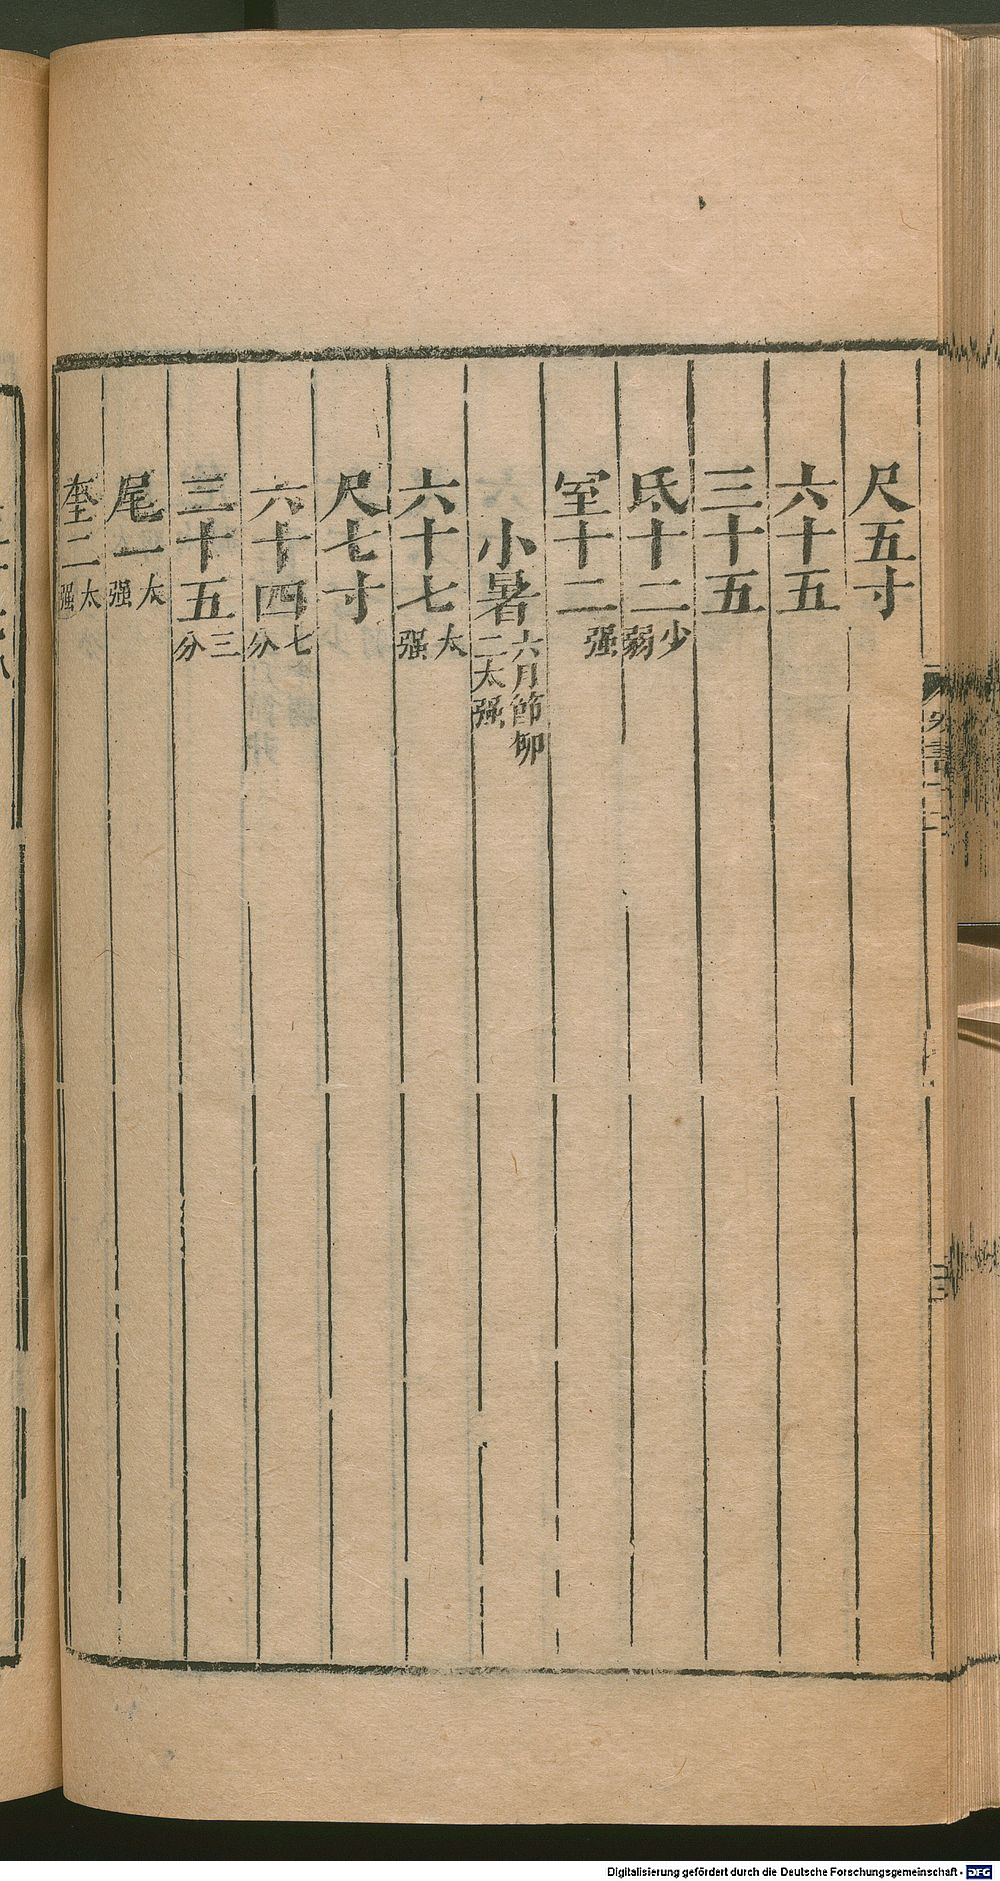 尺五寸
六十五
三十五
氐十二少弱
室十二强
小暑六月節柳二太强
六十七太强
尺七寸
六十四七分
三十五三分
尾一太强
奎二太强
Digitalisierung gefördert durch die Deutsche Forschungsgemeinschaft - DFG